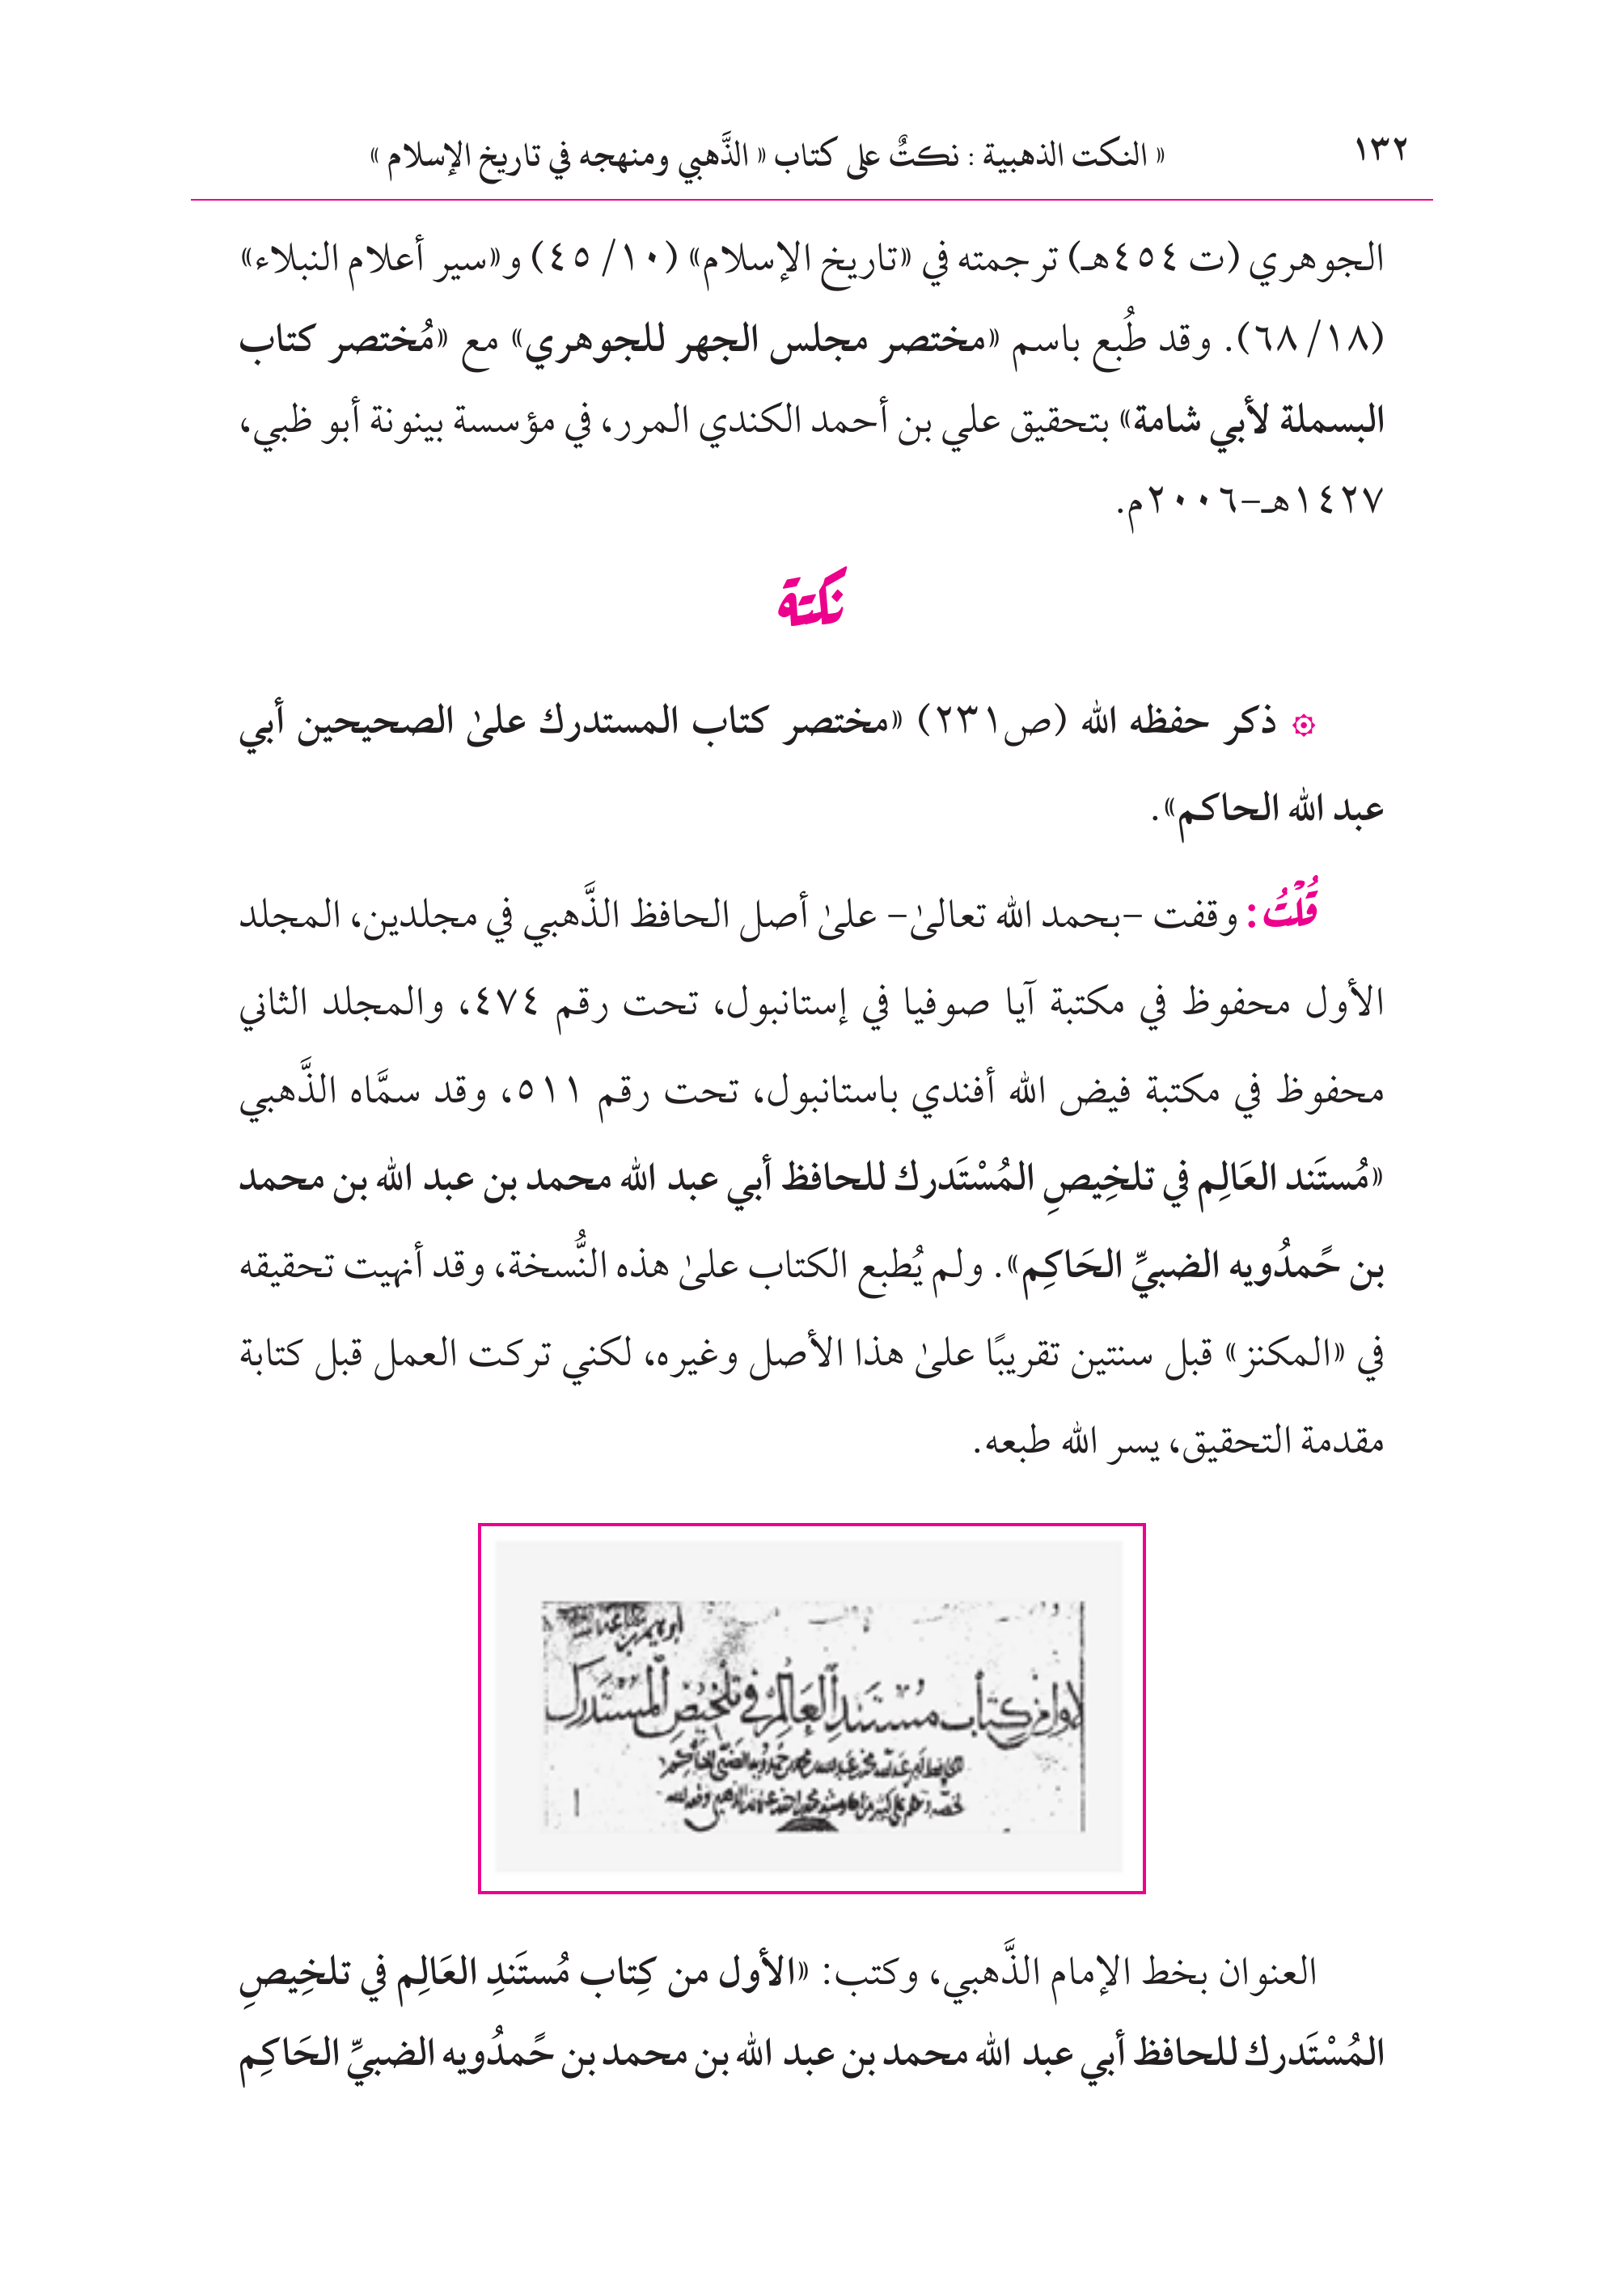 ١٣٢
« النكت الذهبية : نكتٌ على كتاب « الذَّهبي ومنهجه في تاريخ الإسلام »
الجوهري (ت ٤٥٤هـ) ترجمته في «تاريخ الإسلام» (١٠/ ٤٥) و«سير أعلام النبلاء»
(١٨/ ٦٨). وقد طُبع باسم «مختصر مجلس الجهر للجوهري» مع «مُختصر كتاب
البسملة لأبي شامة» بتحقيق علي بن أحمد الكندي المرر، في مؤسسة بينونة أبو ظبي،
١٤٢٧هـ-٢٠٠٦م.
نكتة
۞ ذكر حفظه الله (ص٢٣١) «مختصر كتاب المستدرك علىٰ الصحيحين أبي
عبد الله الحاكم».
قُلْتُ: وقفت -بحمد الله تعالىٰ- علىٰ أصل الحافظ الذَّهبي في مجلدين، المجلد
الأول محفوظ في مكتبة آيا صوفيا في إستانبول، تحت رقم ٤٧٤، والمجلد الثاني
محفوظ في مكتبة فيض الله أفندي باستانبول، تحت رقم ٥١١، وقد سمَّاه الذَّهبي
«مُستَند العَالِم في تلخِيصِ المُسْتَدرك للحافظ أبي عبد الله محمد بن عبد الله بن محمد
بن حًمدُويه الضبيِّ الحَاكِم». ولم يُطبع الكتاب علىٰ هذه النُّسخة، وقد أنهيت تحقيقه
في «المكنز» قبل سنتين تقريبًا علىٰ هذا الأصل وغيره، لكني تركت العمل قبل كتابة
مقدمة التحقيق، يسر الله طبعه.
الأول من كتاب مُسْتَنَدِ العَالِمِ في تلخيص المُسْتَدرك
العنوان بخط الإمام الذَّهبي، وكتب: «الأول من كِتاب مُستَندِ العَالِم في تلخِيصِ
المُسْتَدرك للحافظ أبي عبد الله محمد بن عبد الله بن محمد بن حًمدُويه الضبيِّ الحَاكِم